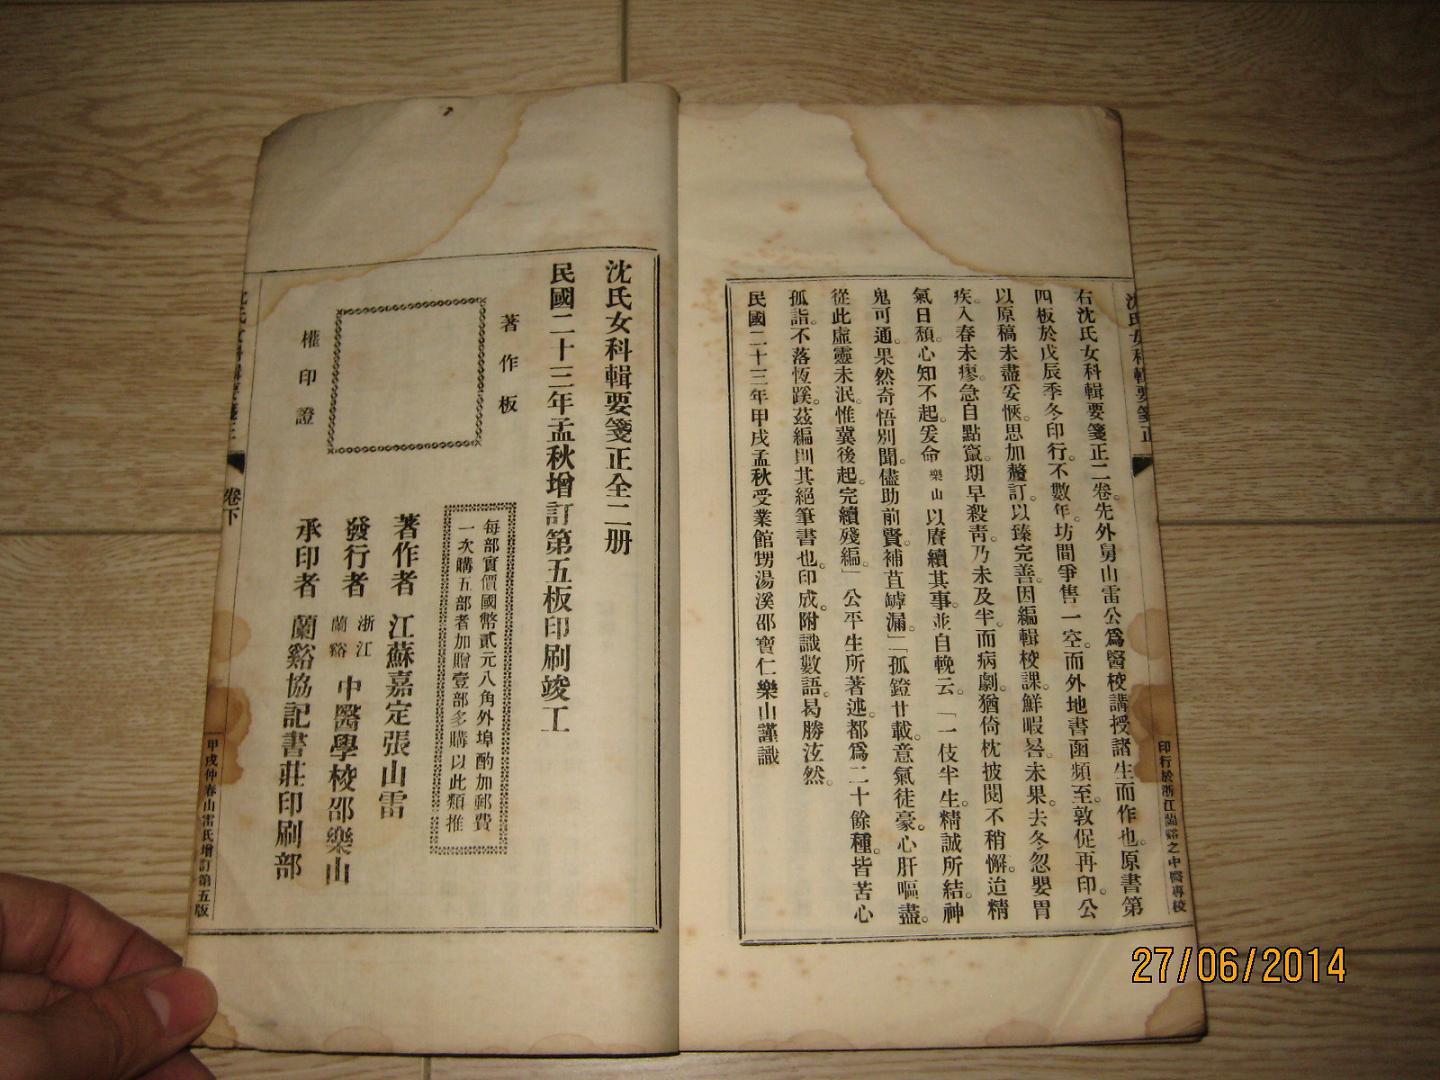 右沈氏女科輯要箋正二卷。先外舅山雷公爲醫校講授諸生而作也。原書第
四板於戊辰季冬印行。不數年。坊間爭售一空。而外地書函頻至。敦促再印。公
以原稿未盡妥愜。思加釐訂。以臻完善。因編輯校課。鮮暇晷。未果。去冬忽嬰胃
疾。入春未瘳。急自點竄。期早殺靑。乃未及半。而病劇。猶倚枕披閱不稍懈。迨精
氣日頹。心知不起。爰命樂山以賡續其事。並自輓云。「一伎半生。精誠所結。神
鬼可通。果然奇悟別聞。儘助前賢。補苴罅漏。」「孤鐙廿載。意氣徒豪。心肝嘔盡。
從此虛靈未泯。惟冀後起。完續殘編。」公平生所著述。都爲二十餘種。皆苦心
孤詣。不落恆蹊。茲編則其絕筆書也。印成。附識數語。曷勝泫然。
民國二十三年甲戌孟秋受業館甥湯溪邵寶仁樂山謹識
印行於浙江蘭谿之中醫專校
沈氏女科輯要箋正全二册
民國二十三年孟秋增訂第五板印刷竣工
著作板
權印證
每部實價國幣貳元八角外埠酌加郵費
一次購五部者加贈壹部多購以此類推
著作者 江蘇嘉定張山雷
發行者 浙江蘭谿 中醫學校邵樂山
承印者 蘭谿協記書莊印刷部
卷下
甲戌仲春山雷氏增訂第五版
27/06/2014